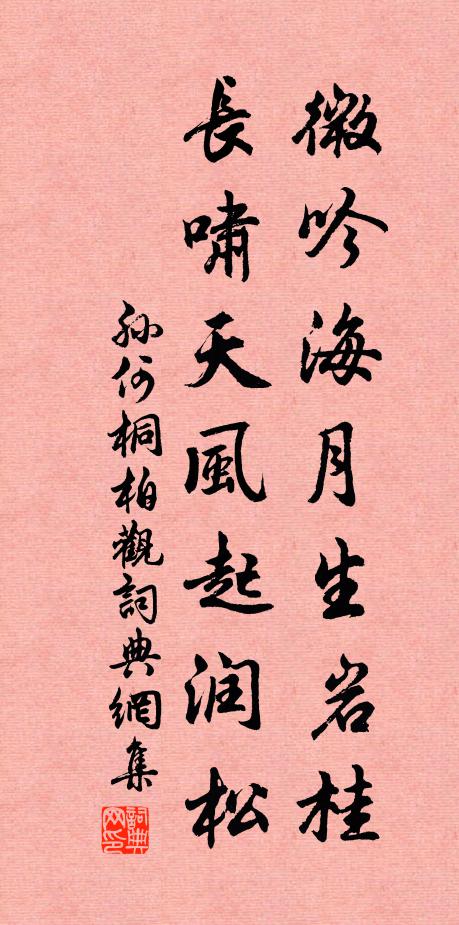 微吟海月生岩桂
長嘯天風起润松
孫何桐柏觀詞典網集
詞典网印